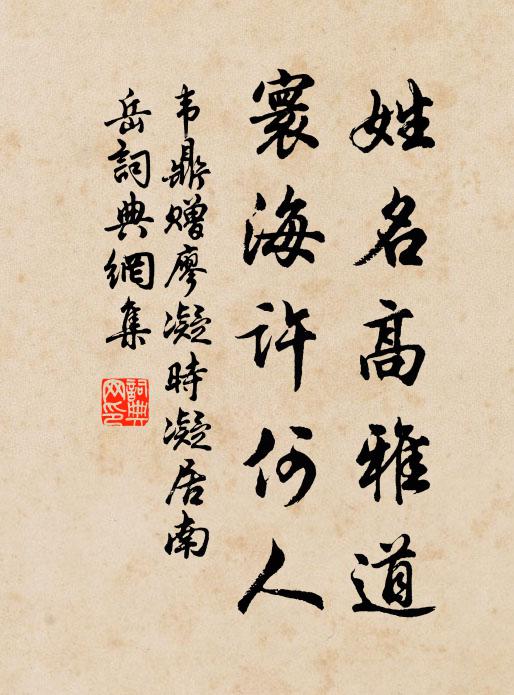 姓名高雅道
寰海许何人
韦鼎赠廖凝时凝居南
岳詞典網集
詞典網印